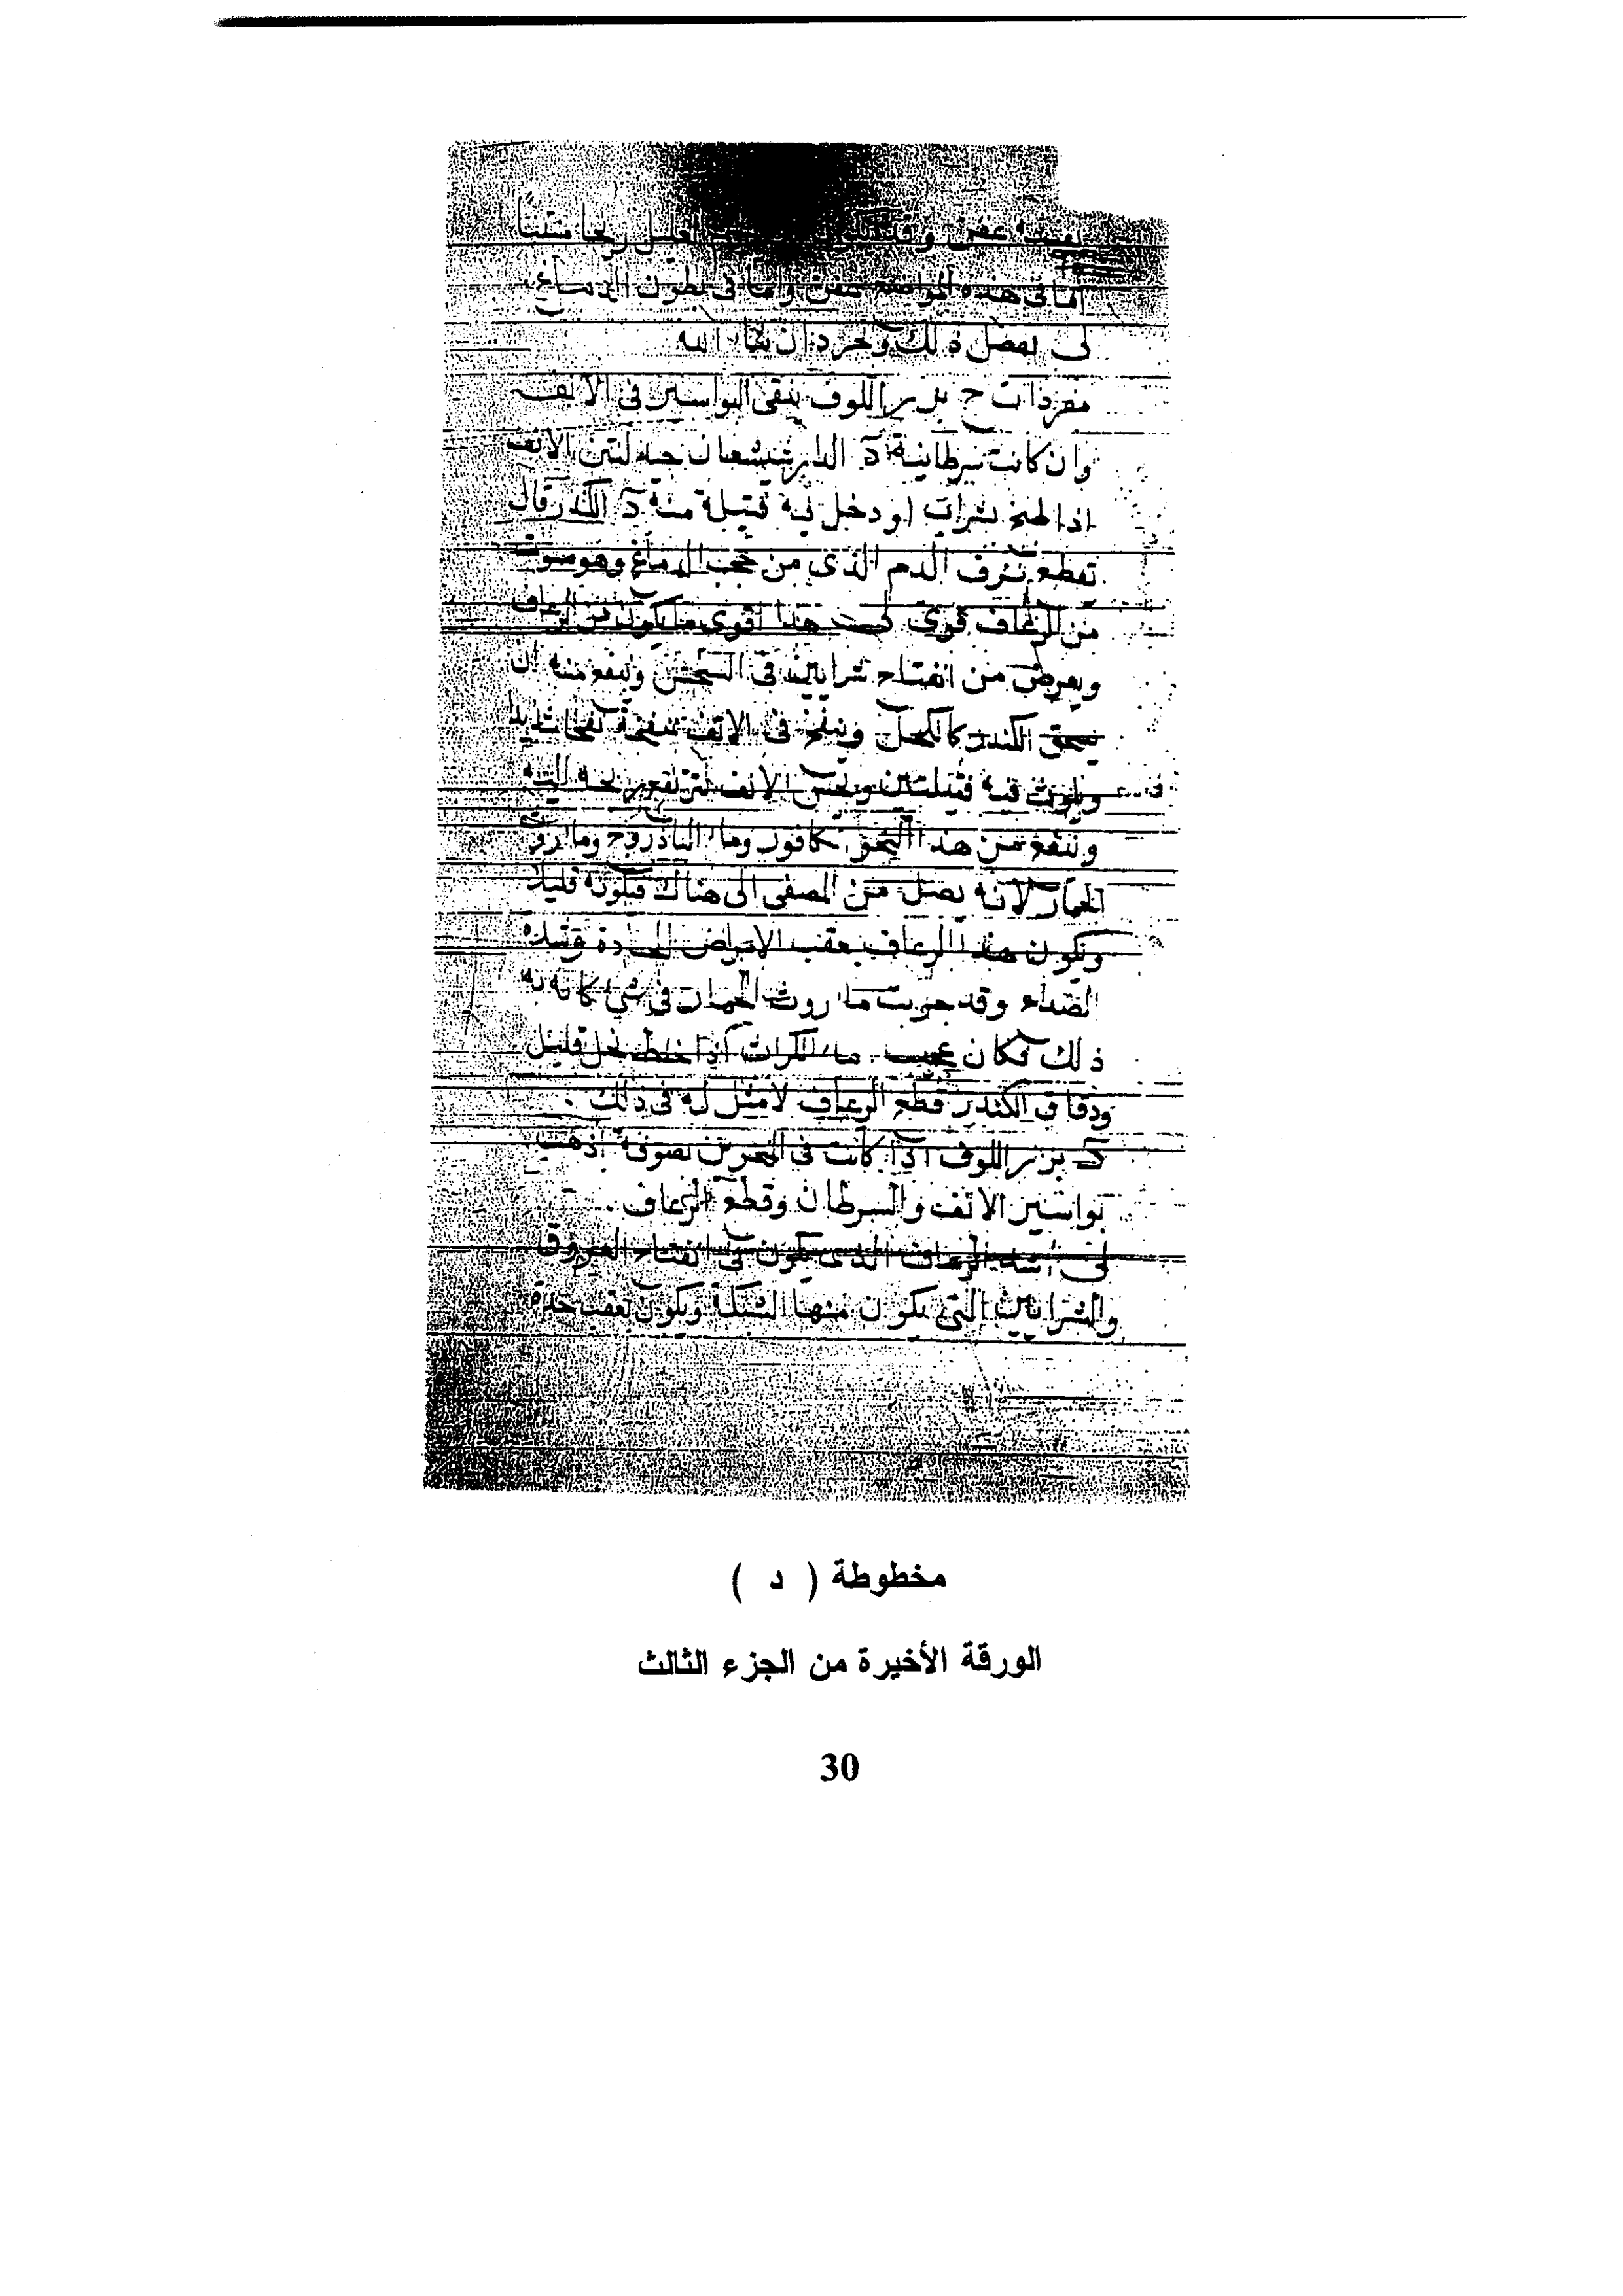 بعضه عفن وقد العليل ريحا منتنا
اما في هذه المواضع عفن واما في بطون الدماغ
لى يفصل ذلك ويحرر ان شا الله
مفردات ج بزر اللوف ينقى البواسير في الانف
وان كانت سرطانية د الدارشيشعان جيد لنتن الانف
اذا بشراب او دخل فيه فتيلة منه د الكندر قال
تقطع نزف الدم الذي من حجب الدماغ وهو
من الرعاف قوى لى هذا اقوى ما يكون من الرعاف
ويعرض من انفتاح شرايين في وينفع منه ان
يسحق الكندر كالكحل وينفخ في الانف نفخا شديدا
ويلوث فيه فتيلتين الانف
وينفع من هذا كافور وما الباذروج وما روث
الحمار لانه يصل من المصفى الى هناك قليلا
ويكون هذا الرعاف بعقب الامراض الحادة وشدة
الصداع وقد جربت ما روث الحمار في شى كانه به
ذلك فكان عجيب ما الكراث اذا خلط بخل قليل
ودقاق الكندر قطع الرعاف لا مثل له في ذلك .
د بزر اللوف اذا كانت في المنخرين بصوفة اذهب
بواسير الانف والسرطان وقطع الرعاف .
لى اشد الرعاف الذي يكون انفتاح العروق
والشرايين التي يكون منها الشبكة ويكون بعقب حدة
مخطوطة ( د )
الورقة الأخيرة من الجزء الثالث
30